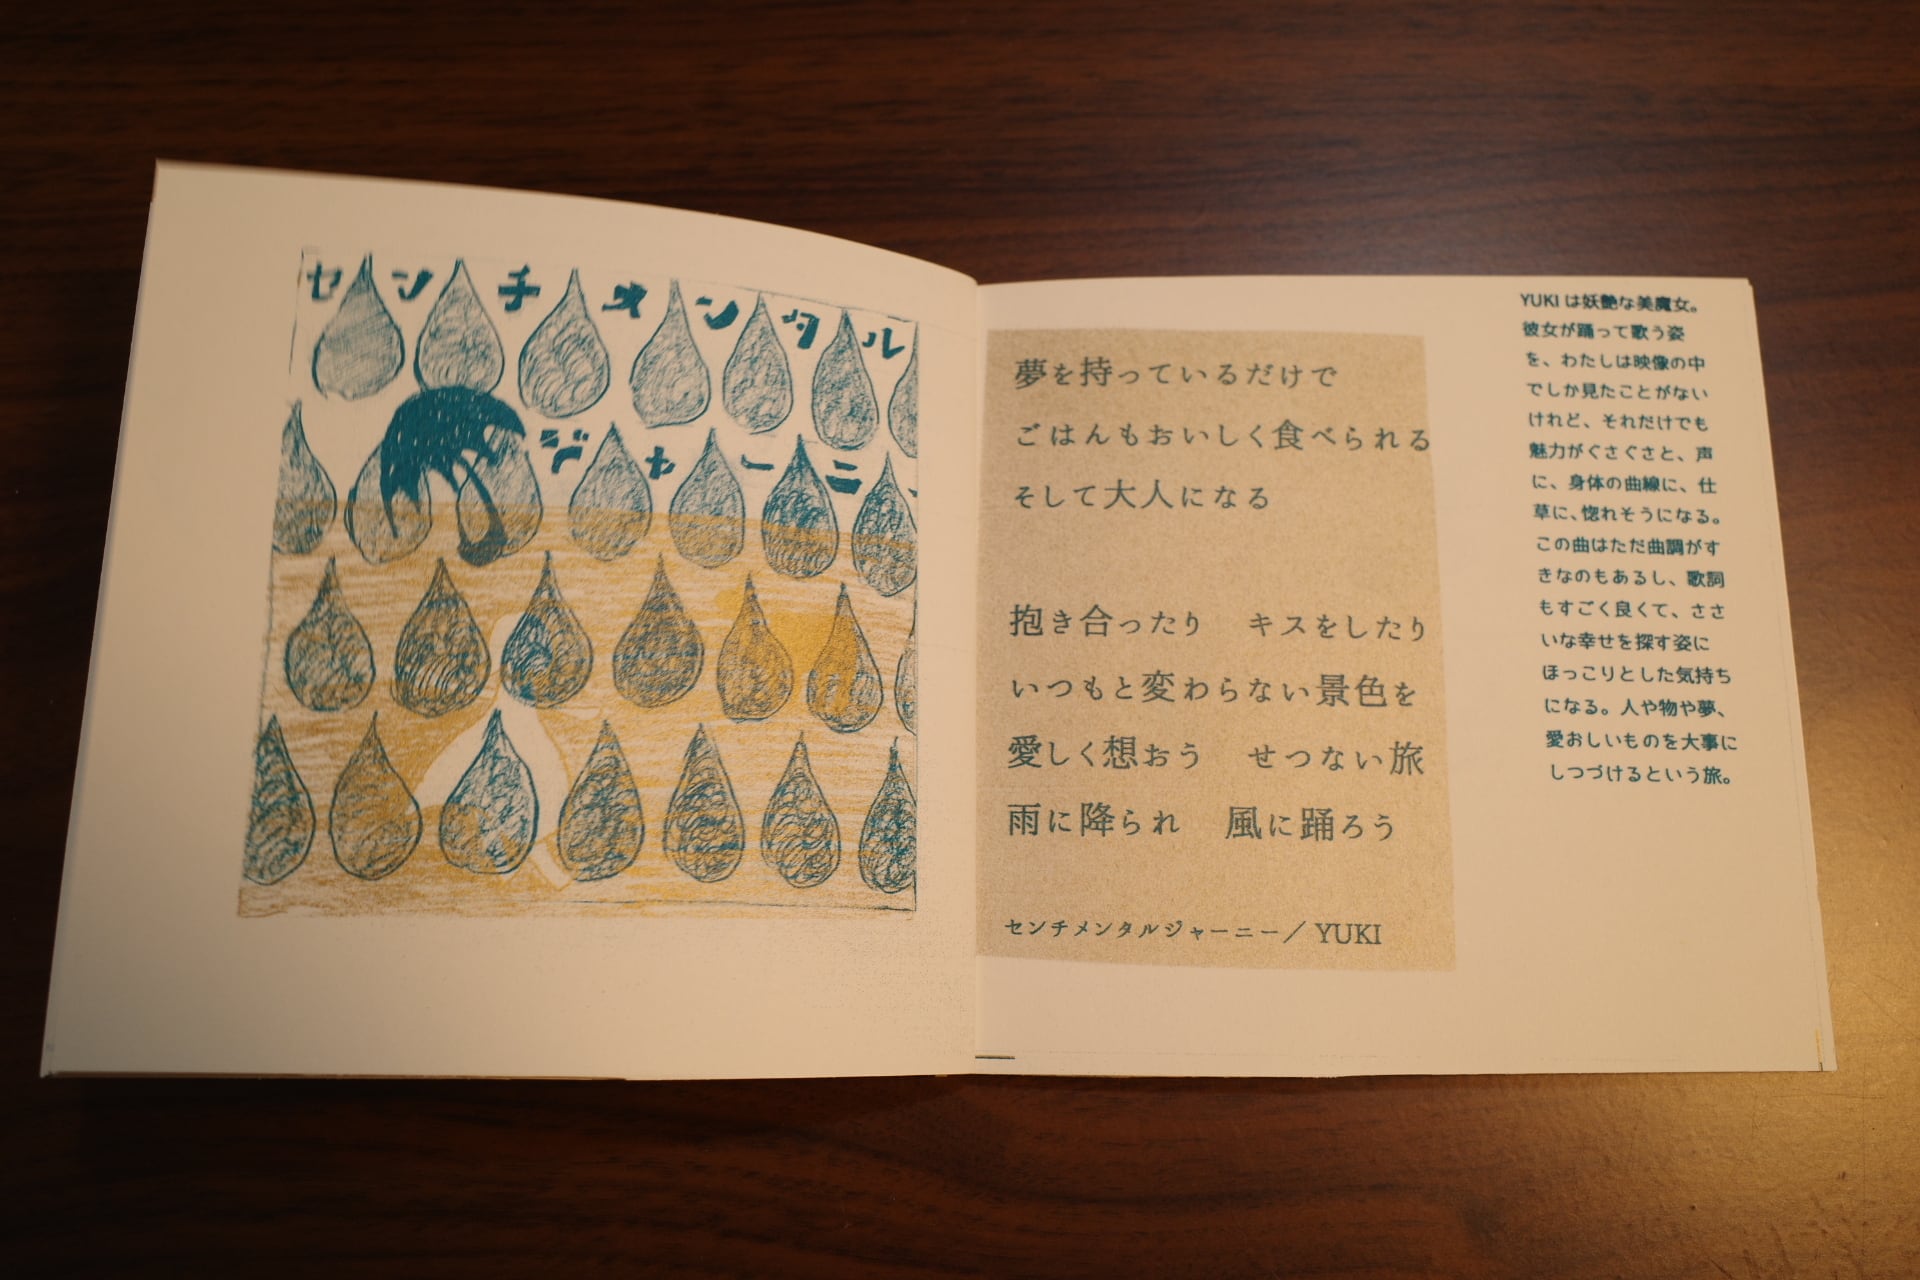 センチメンタル
ジャーニー
夢を持っているだけで
ごはんもおいしく食べられる
そして大人になる
抱き合ったり　キスをしたり
いつもと変わらない景色を
愛しく想おう　せつない旅
雨に降られ　風に踊ろう
センチメンタルジャーニー／YUKI
YUKIは妖艶な美魔女。
彼女が踊って歌う姿
を、わたしは映像の中
でしか見たことがない
けれど、それだけでも
魅力がぐさぐさと、声
に、身体の曲線に、仕
草に、惚れそうになる。
この曲はただ曲調がす
きなのもあるし、歌詞
もすごく良くて、ささ
いな幸せを探す姿に
ほっこりとした気持ち
になる。人や物や夢、
愛おしいものを大事に
しつづけるという旅。